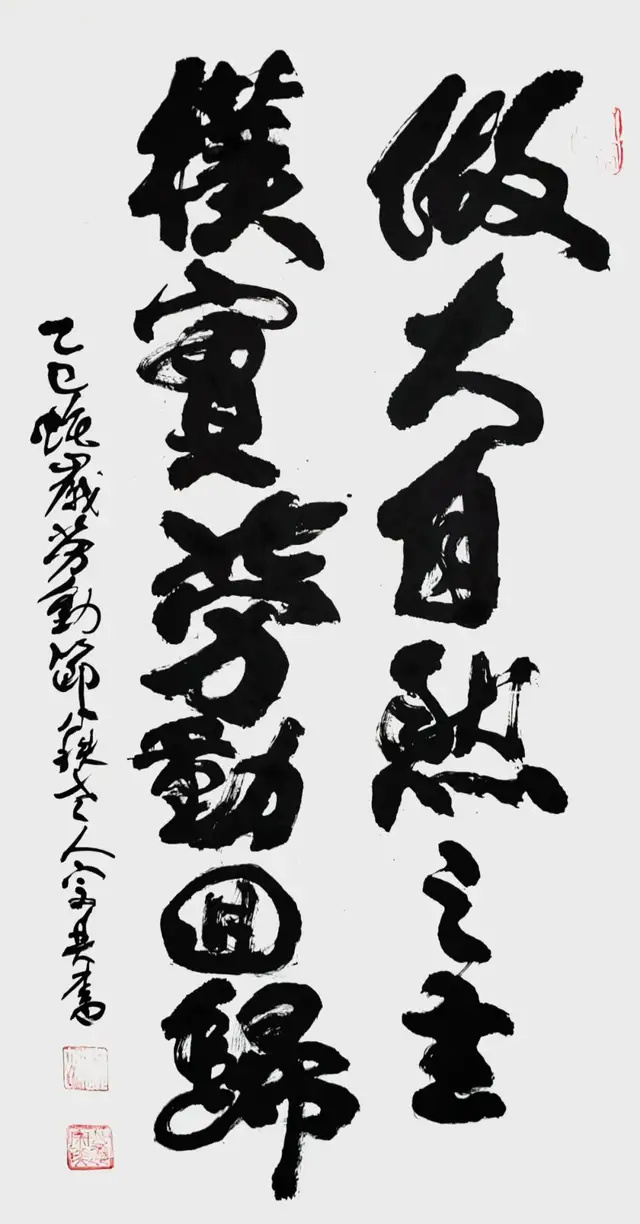 做大自然之主
樸實勞動回歸
乙巳蛇歲勞動節 老人